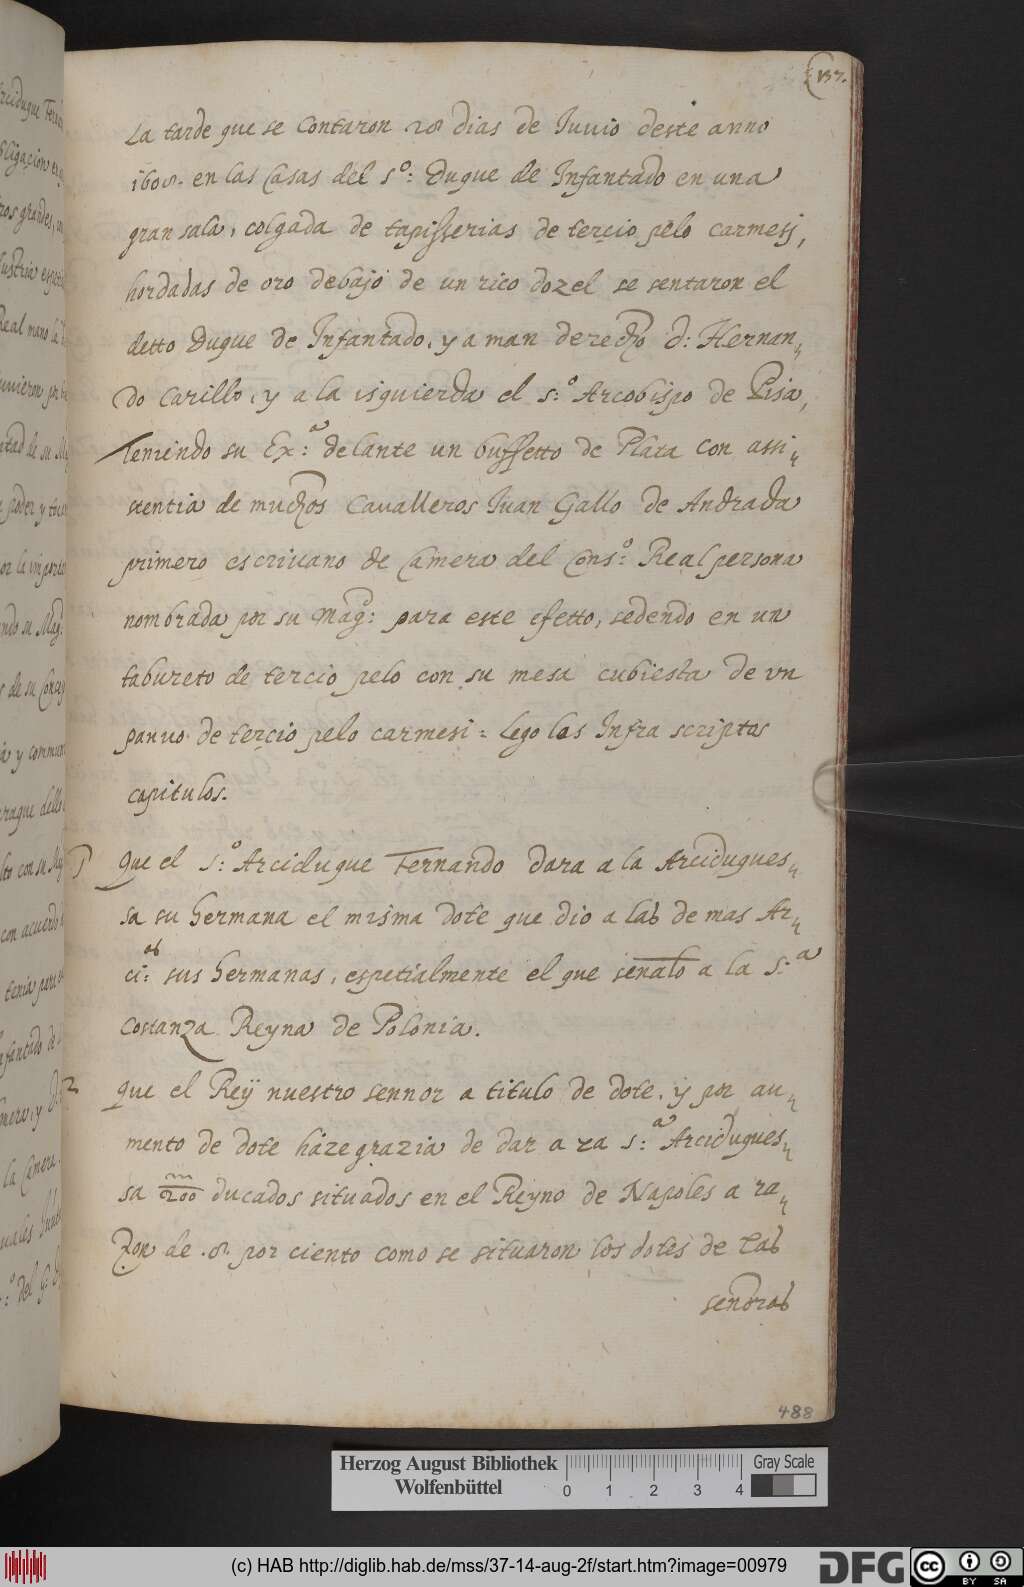 137.
La tarde que se Contaron 28 dias de Iunio deste anno
1608. en las Casas del s.o: Duque de Infantado en una
gran sala, colgada de tapisserias de tercio pelo carmesj,
bordadas de oro debajo de un rico dozel se sentaron el
detto Duque de Infantado, y a man derecho D: Hernan,,
Do Carillo, y a la isquierda el s:o Arcobispo de Pisa,
Teniendo su Ex:a delante un buffetto de Plata con assi,,
stentia de muchos Cavalleros Iuan Gallo de Andrada
primero escriuano de Camera del Cons:o Real persona
nombrada por su Mag.d: para este efetto, sedendo en un
tabureto de tercio pelo con su mesa cubiesta de vn
panuo de tercio pelo carmesi = Lego los Infra scriptos
capitulos.
1 Que el S:o Arciduque Fernando dara a la Arciduques,,
sa su hermana el misma dote que dio a las de mas Ar,,
ci:as sus hermanas, espetialmente el que senalo a la S:a
Costanza Reyna de Polonia.
2 que el Reÿ nuestro sennor a titulo de dote, y por au,,
mento de dote hize grazia de dar a za s:a Arciduques,,
sa m/200 ducados situados en el Reyno de Napoles a ra,,
Zon de .8. por ciento como se situaron los dotes de las
senoras
488
Herzog August Bibliothek
Wolfenbüttel
0 1 2 3 4
Gray Scale
(c) HAB http://diglib.hab.de/mss/37-14-aug-2f/start.htm?image=00979
DFG
cc BY SA